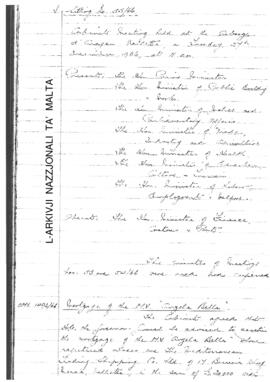 L-ARKIVJI NAZZJONALI TA' MALTA
Cabinet Meeting held at the Auberge
d'Aragon Valletta on Tuesday, 27th
December, 1966, at 11 am.
Present: The Hon. Prime Minister
The Hon. Minister of Public Building
& Works.
The Hon. Minister of
Parliamentary Affairs
The Hon. Minister of Trade,
Industry and Agriculture
The Hon. Minister of Health
The Hon. Minister of Education,
Culture & Tourism
The Hon. Minister of Labour,
Employment & Welfare.
Absent: The Hon. Minister of Finance,
Customs & Port.
The minutes of Meetings
Nos. 53 and 54/66 were read and confirmed
Mortgage of the M.V. "Angela Bella"
The Cabinet agreed that
H.E. the Governor General be advised to
the mortgage of the M.V. "Angela Bella" whose
registered owners are The Mediterranean
Trading Shipping Co. Ltd. of 17
Valletta, in the sum of